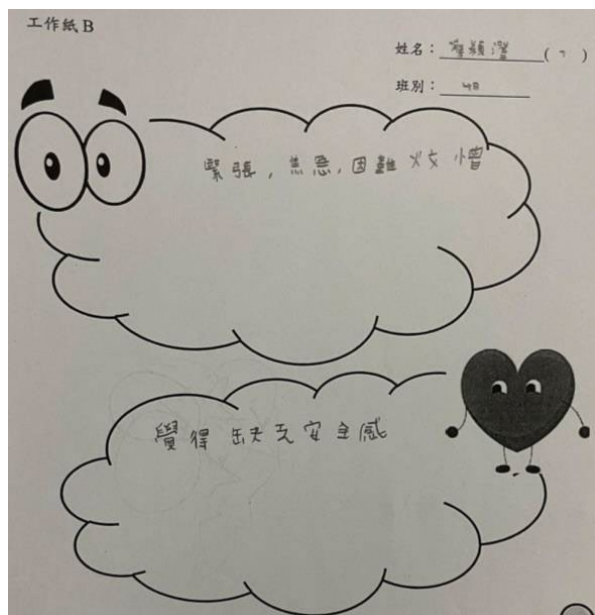 工作紙 B
姓名： ( 7 )
班別： 4B
緊張，焦急，因難
覺得缺乏安全感